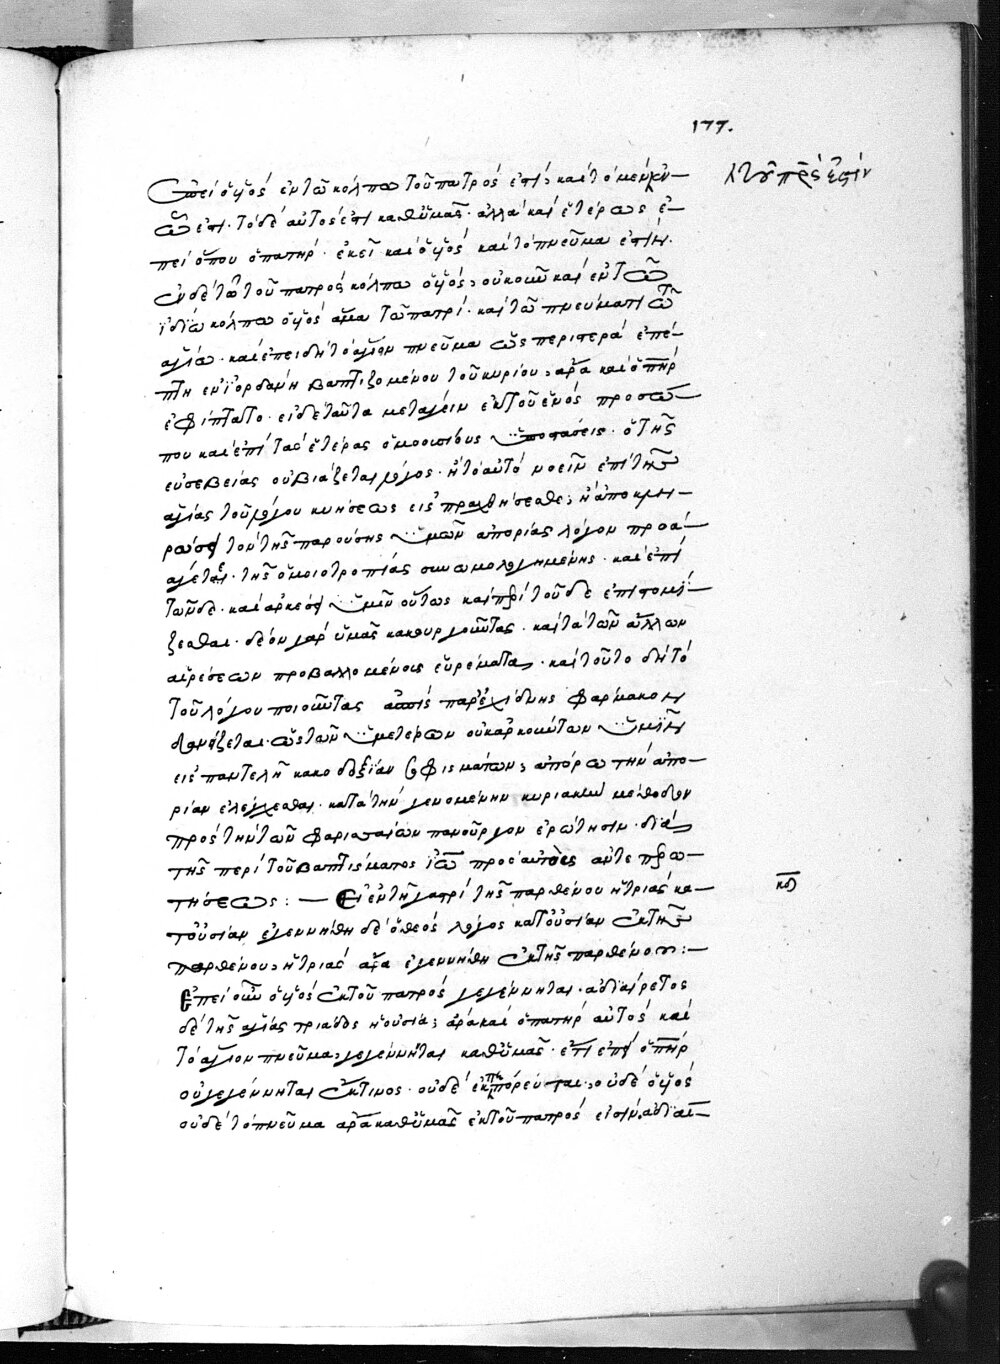 177.
ἐπεὶ ὁ υἱὸς ἐν τῶ κόλπω τοῦ πατρὸς ἐστὶ· καὶ τὸ μὲν ἐν
ὧ ἐστι· τὸ δὲ αὐτὸς ἐστι καθ' ὑμᾶς· ἀλλὰ καὶ ἑτέρως ἐ-
πεὶ ὅπου ὁ πατήρ· ἐκεῖ καὶ ὁ υἱὸς καὶ τὸ πνεῦμα ἐστίν·
ἐν δὲ τῶ τοῦ πατρὸς κόλπω ὁ υἱὸς· οὐκοῦν καὶ ἐν τῶ
ἰδίω κόλπω ὁ υἱὸς ἅμα τῶ πατρί· καὶ τῶ πνεύματι τῶ
ἁγίω· καὶ ἐπειδὴ τὸ ἅγιον πνεῦμα ὡς περιστερὰ ἐπέ-
πτη ἐν ἰορδάνη βαπτιζομένου τοῦ κυρίου· ἄρα καὶ ὁ πηρ
ἐφίπτατο· εἰ δὲ ταῦτα μετάγειν ἐκ τοῦ ἑνὸς προσώ-
που καὶ ἐπὶ τὰς ἑτέρας ὁμοουσίους ὑποστάσεις· ὁ τῆς
εὐσεβείας οὐ βιάζεται λόγος· ἢ τὸ αὐτὸ νοεῖν ἐπὶ τῆς
ἁγίας τοῦ λόγου κυήσεως εἰσπραχθήσεσθε; ἢ ἀποκρι-
τὸν τῆς παρούσης ὑμῶν ἀπορίας λόγον προσά-
γεται· τῆς ὁμοιοτροπίας συνωμολογημένης· καὶ ἐπὶ
τῶνδε· καὶ ὑμῖν οὕτως καὶ περὶ τοῦδε ἐπιτομί-
ζεσθαι· δέον γὰρ ὑμᾶς κακουργοῦντας· καὶ τὰ τῶν ἄλλων
αἱρέσεων προβαλλομένοις εὑρέματα· καὶ τοῦτο δὴ τὸ
τοῦ λόγου ποιοῦντας παρ' ἐχίδνης φάρμακον
δανείζεται· ὡς τῶν ὑμετέρων οὐκ ἀρκούντων ὑμῖν
εἰς παντελῆ κακοδοξίαν σοφισμάτων· ἀπόρω τὴν ἀπο-
ρίαν ἐλέγχεσθαι· κατὰ τὴν γενομένην κυριακὴν μέθοδον
πρὸς τὴν τῶν φαρισαίων πανοῦργον ἐρώτησιν· διὰ
τῆς περὶ τοῦ βαπτίσματος ἰω πρὸς αὐτοὺς ἀντεπερω-
τήσεως: — Εἰ ἐν τῆ γαστρὶ τῆς παρθένου ἡ τριὰς κα-
τ' οὐσίαν ἐγεννήθη δὲ ὁ θεὸς λόγος κατ' οὐσίαν ἐκ τῆς
παρθένου· ἡ τριὰς ἄρα ἐγεννήθη ἐκ τῆς παρθένου:—
Ἐπεὶ οὖν ὁ υἱὸς ἐκ τοῦ πατρὸς γεγέννηται· ἀδιαίρετος
δὲ τῆς ἁγίας τριάδος ἡ οὐσία; ἄρα καὶ ὁ πατὴρ αὐτὸς καὶ
τὸ ἅγιον πνεῦμα γεγέννηται καθ' ὑμᾶς· ἔτι ἐπεὶ ὁ πηρ
οὐ γεγέννηται ἔκ τινος· οὐδὲ ἐκπορεύεται· οὐδὲ ὁ υἱὸς
οὐδὲ τὸ πνεῦμα ἄρα καθ' ὑμᾶς ἐκ τοῦ πατρὸς εἰσὶν· ἀδιαι-